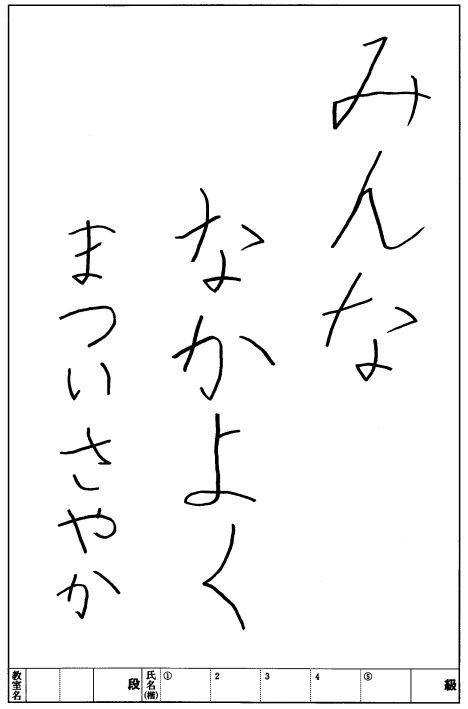 みんな
なかよく
まついさやか
教室名 段 氏名(楷) ① 2 3 4 ⑤ 級